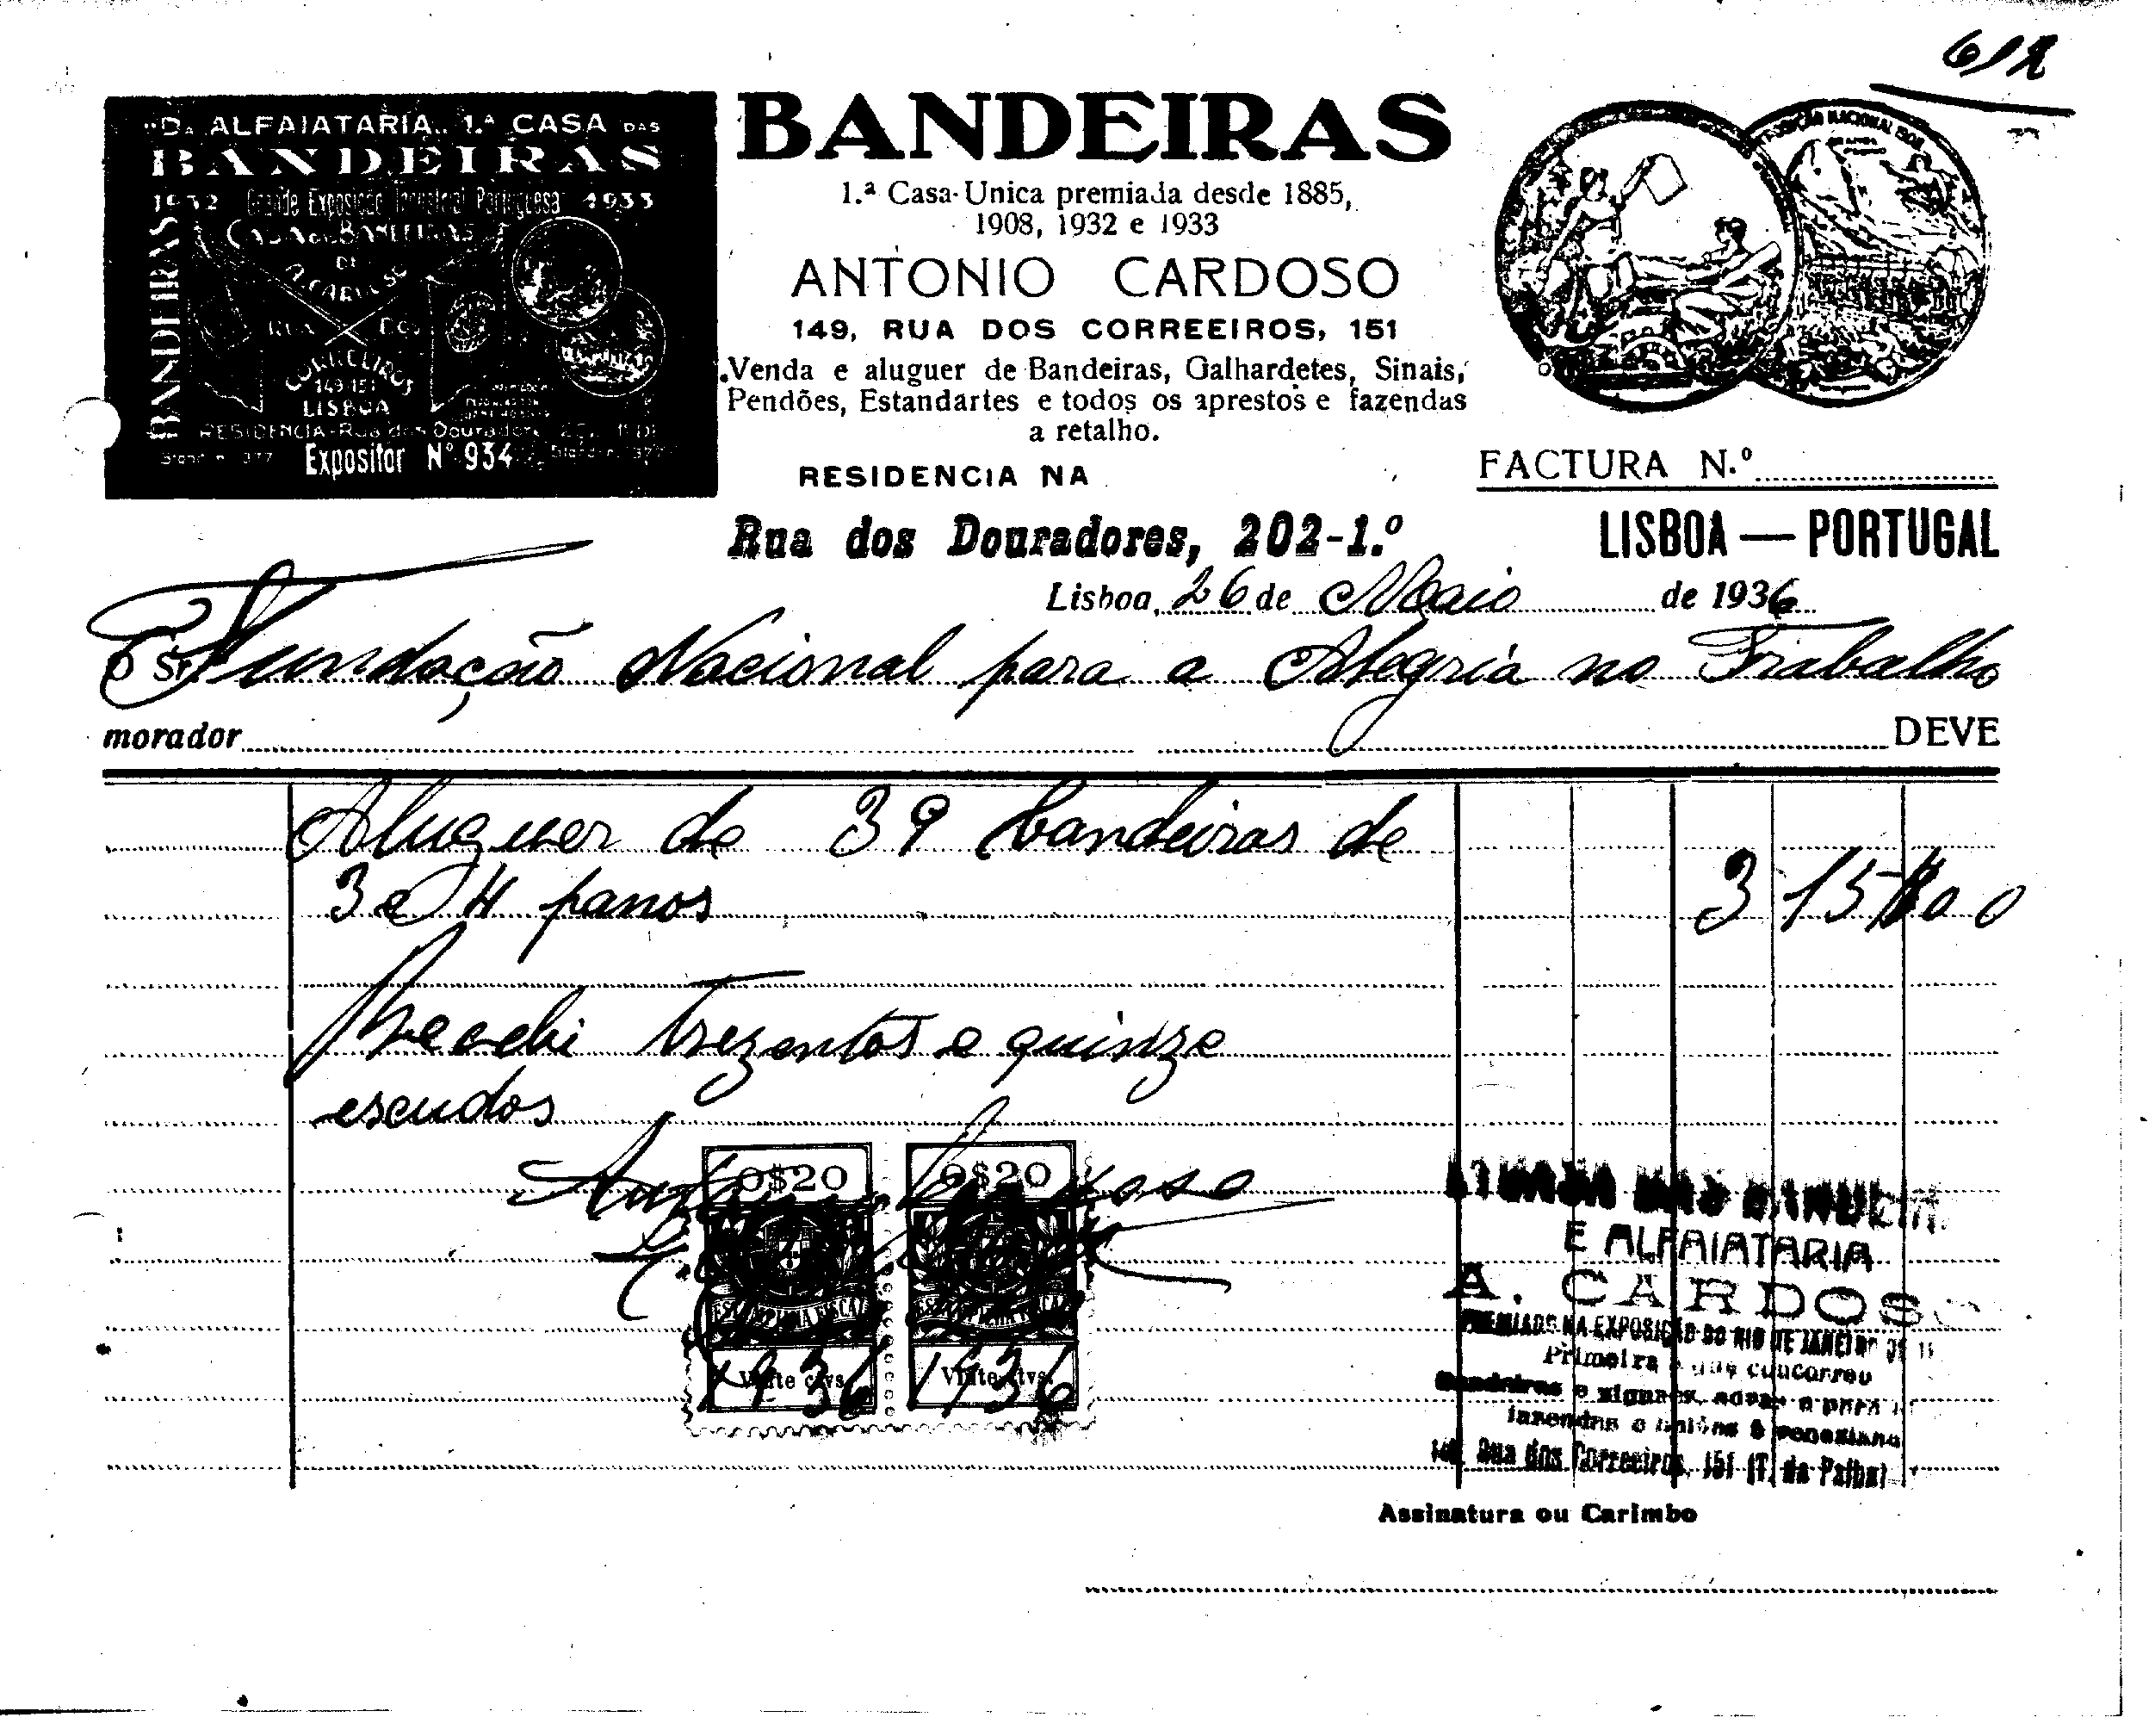 D. ALFAIATARIA.. 1.ª CASA DAS
BANDEIRAS
1932 Grande Exposição Industrial Portuguesa 1933
BANDEIRAS
CASA DE BANDEIRAS
DE
A. CARDOSO
RUA DOS
CORREEIROS
149-151
LISBOA
RESIDENCIA-Rua dos Douradores
Expositor Nº 934
BANDEIRAS
1.ª Casa-Unica premiada desde 1885,
1908, 1932 e 1933
ANTONIO CARDOSO
149, RUA DOS CORREEIROS, 151
Venda e aluguer de Bandeiras, Galhardetes, Sinais,
Pendões, Estandartes e todos os aprestos e fazendas
a retalho.
RESIDENCIA NA
Rua dos Douradores, 202-1.º
FACTURA N.º
LISBOA — PORTUGAL
Lisboa, 26 de Maio de 1936
O Sr. Fundação Nacional para a Alegria no Trabalho
morador DEVE
Aluguer de 39 bandeiras de
3 e 4 panos 315$00
Recebi trezentos e quinze
escudos
Antonio Cardoso
0$20 0$20
ESTAMPILHA FISCAL
Vinte ctvs. Vinte ctvs.
1936 1936
E ALFAIATARIA
A. CARDOSO
PREMIADO NA EXPOSIÇÃO DO RIO DE JANEIRO
Primeira que concorreu
Bandeiras e signaes
fazendas
149, Rua dos Correeiros, 151 (T. da Palha)
Assinatura ou Carimbo